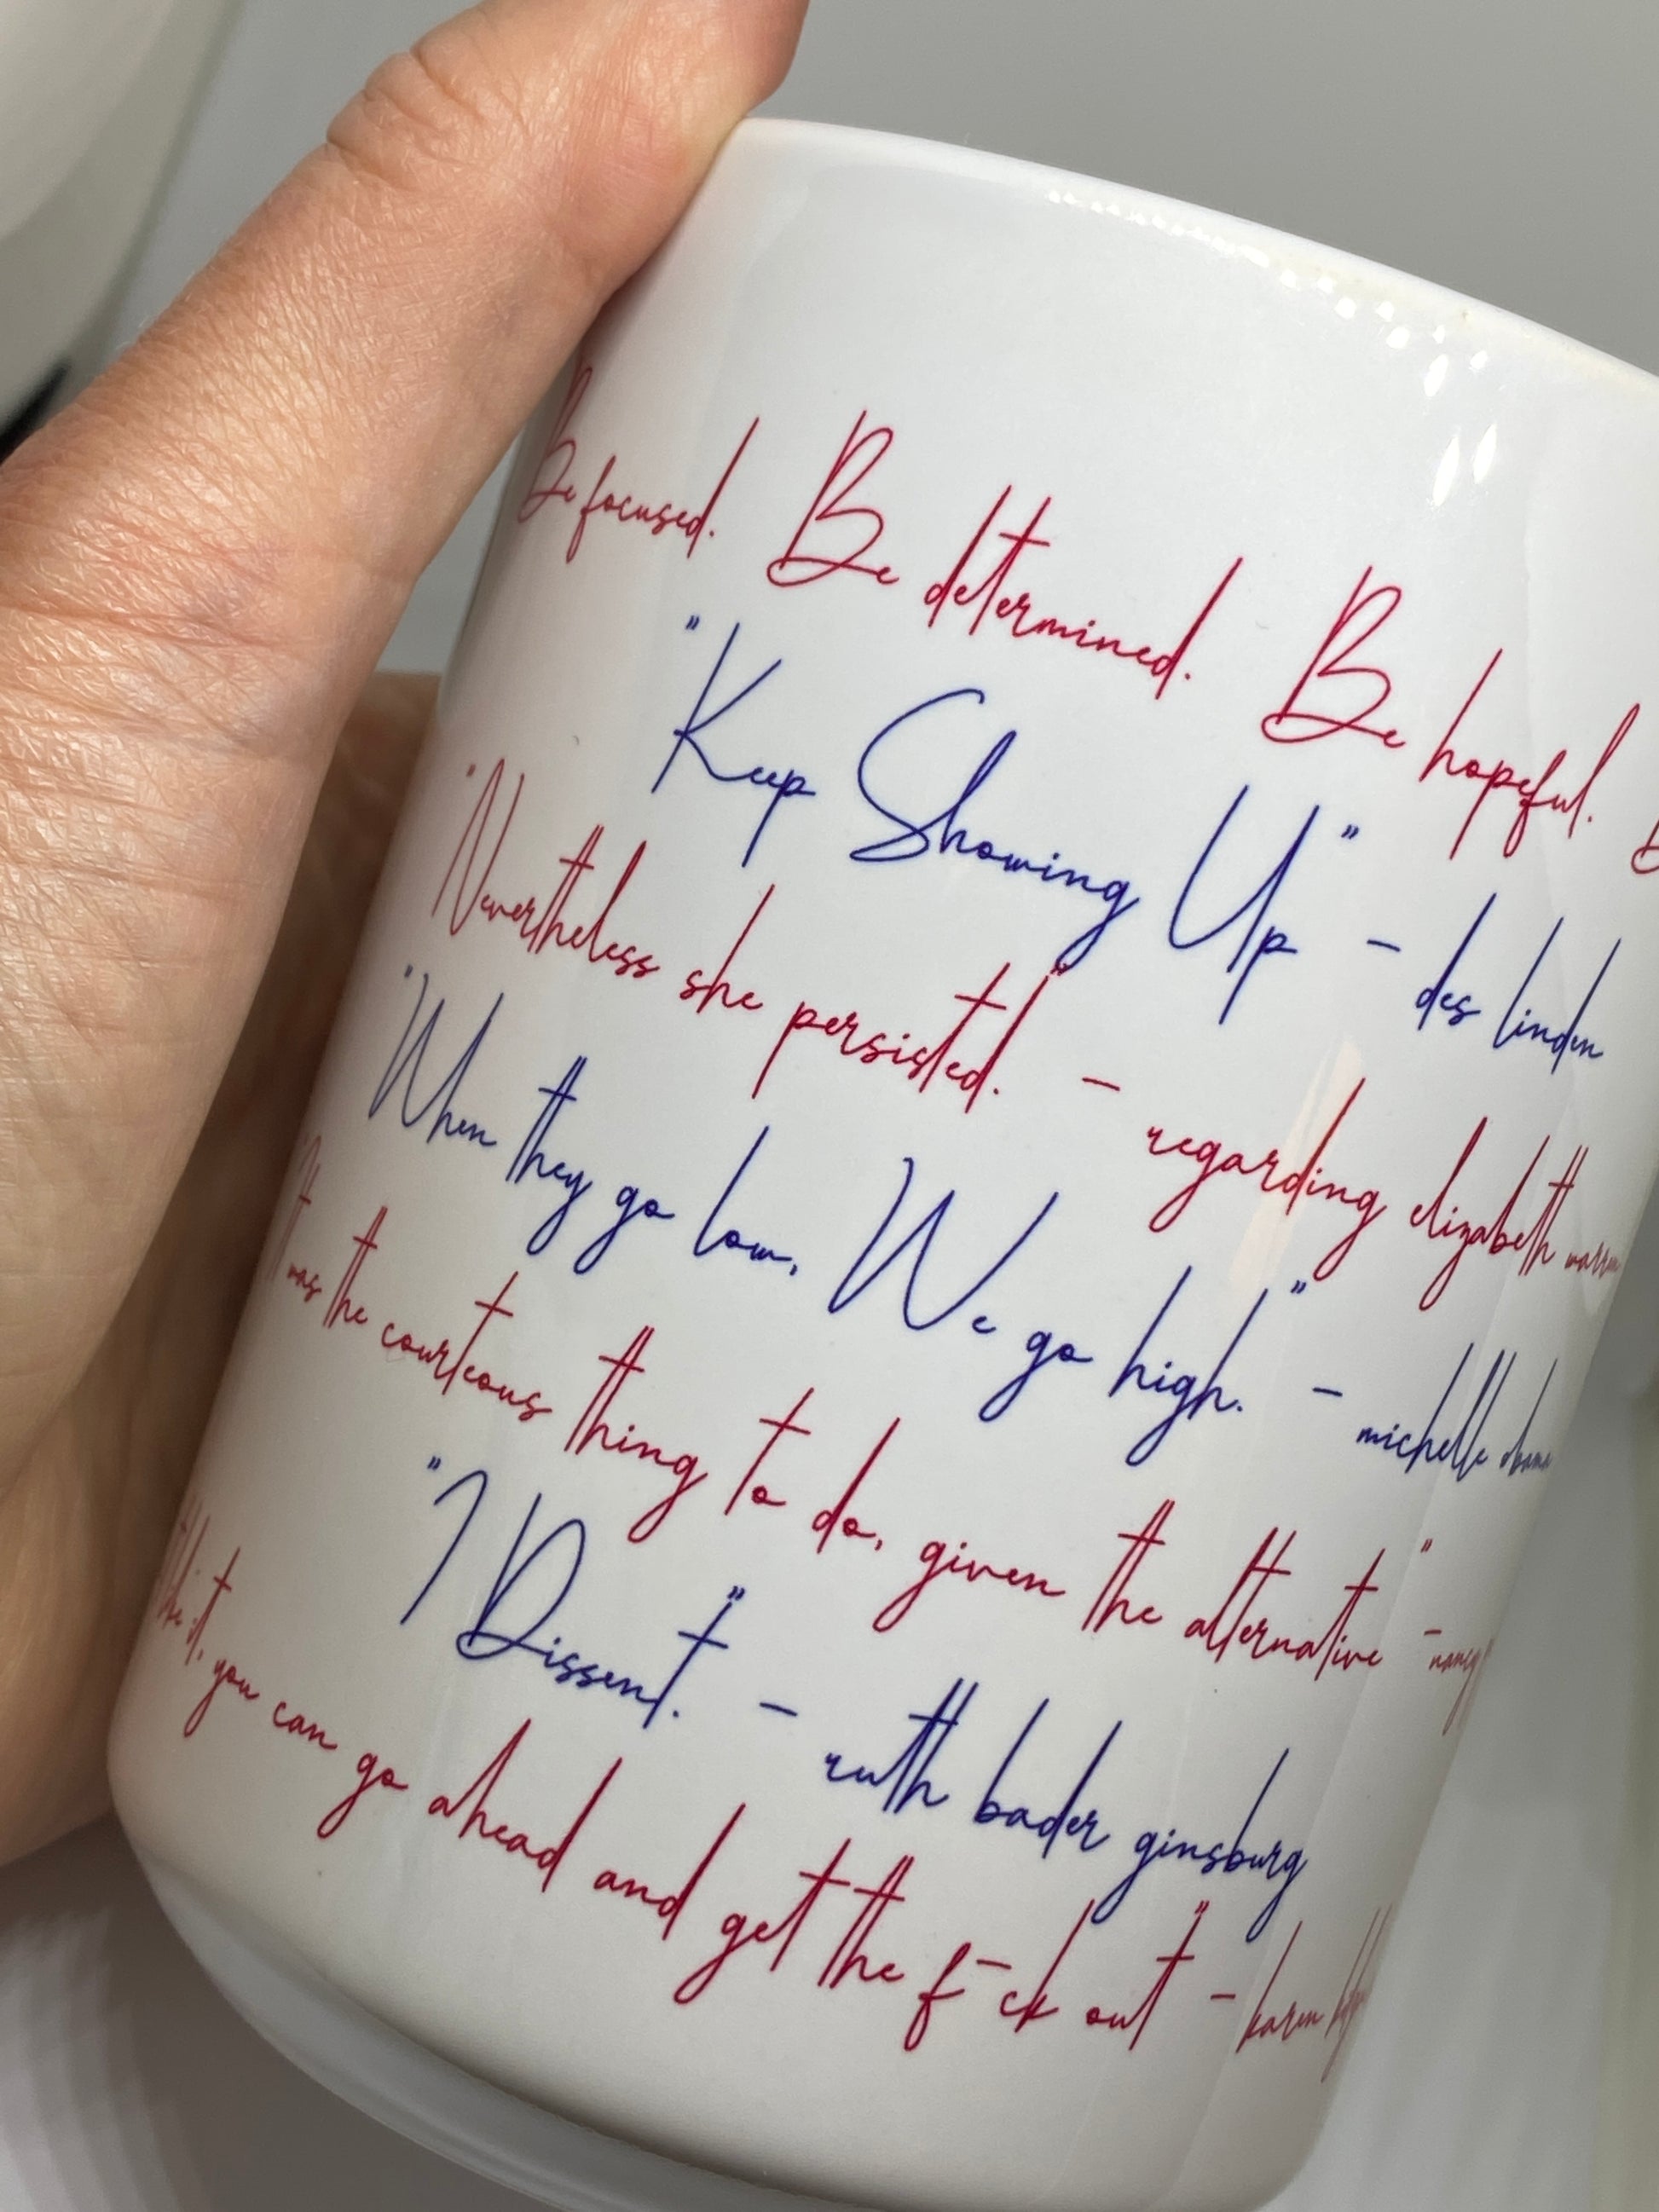 Be focused. Be determined. Be hopeful. B
"Keep Showing Up" - des linden
"Nevertheless she persisted." - regarding elizabeth warren
"When they go low, We go high." - michelle obama
"It was the courteous thing to do, given the alternative" - nancy
like it, you can go ahead and get the f-ck out" - karen
"I Dissent." - ruth bader ginsburg